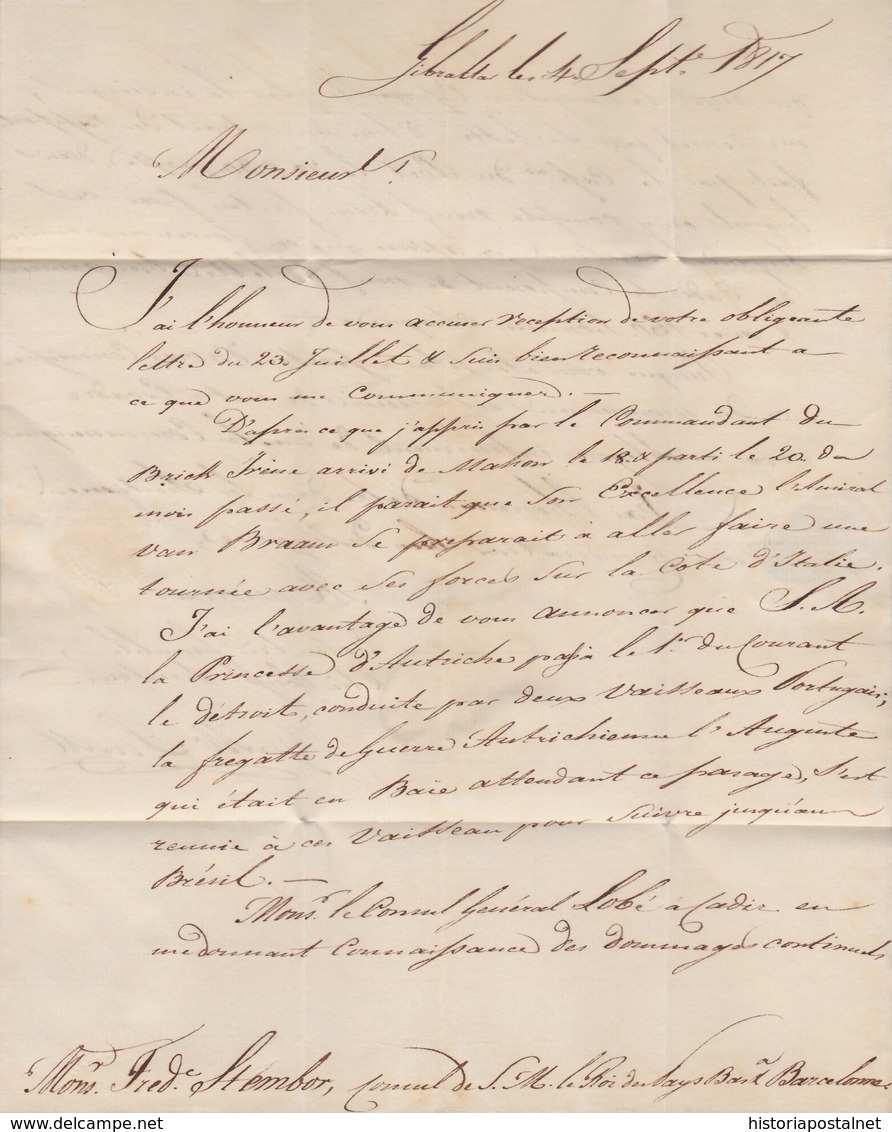 Gibraltar le 4 Septe. 1817
Monsieur!
J'ai l'honneur de vous accuser reception de votre obligeante
lettre du 23. Juillet & suis bien reconnaissant a
ce que vous me communiquez. —
D'après ce que j'appris par le Commandant du
Brick Irène arrivé de Mahon le 18. & parti le 20. du
mois passé, il parait que Son Excellence l'Amiral
van Braam se preparait à aller faire une
tournée avec ses forces sur la Côte d'Italie.
J'ai l'avantage de vous annoncer que S. A.
la Princesse d'Autriche passa le 1r. du Courant
le détroit, conduite par deux Vaisseaux Portugais;
la fregatte de Guerre Autrichienne l'Auguste
qui était en Baïe attendant ce passage, s'est
reunie à ces Vaisseau pour suivre jusqu'au
Brésil. —
Monsr. le Consul Général Lobé à Cadix en
me donnant Connaissance des dommages continuels
Monsr. Fredc. Stembor, Consul de S. M. le Roi des Pays Bas à Barcelone
historiapostalnet